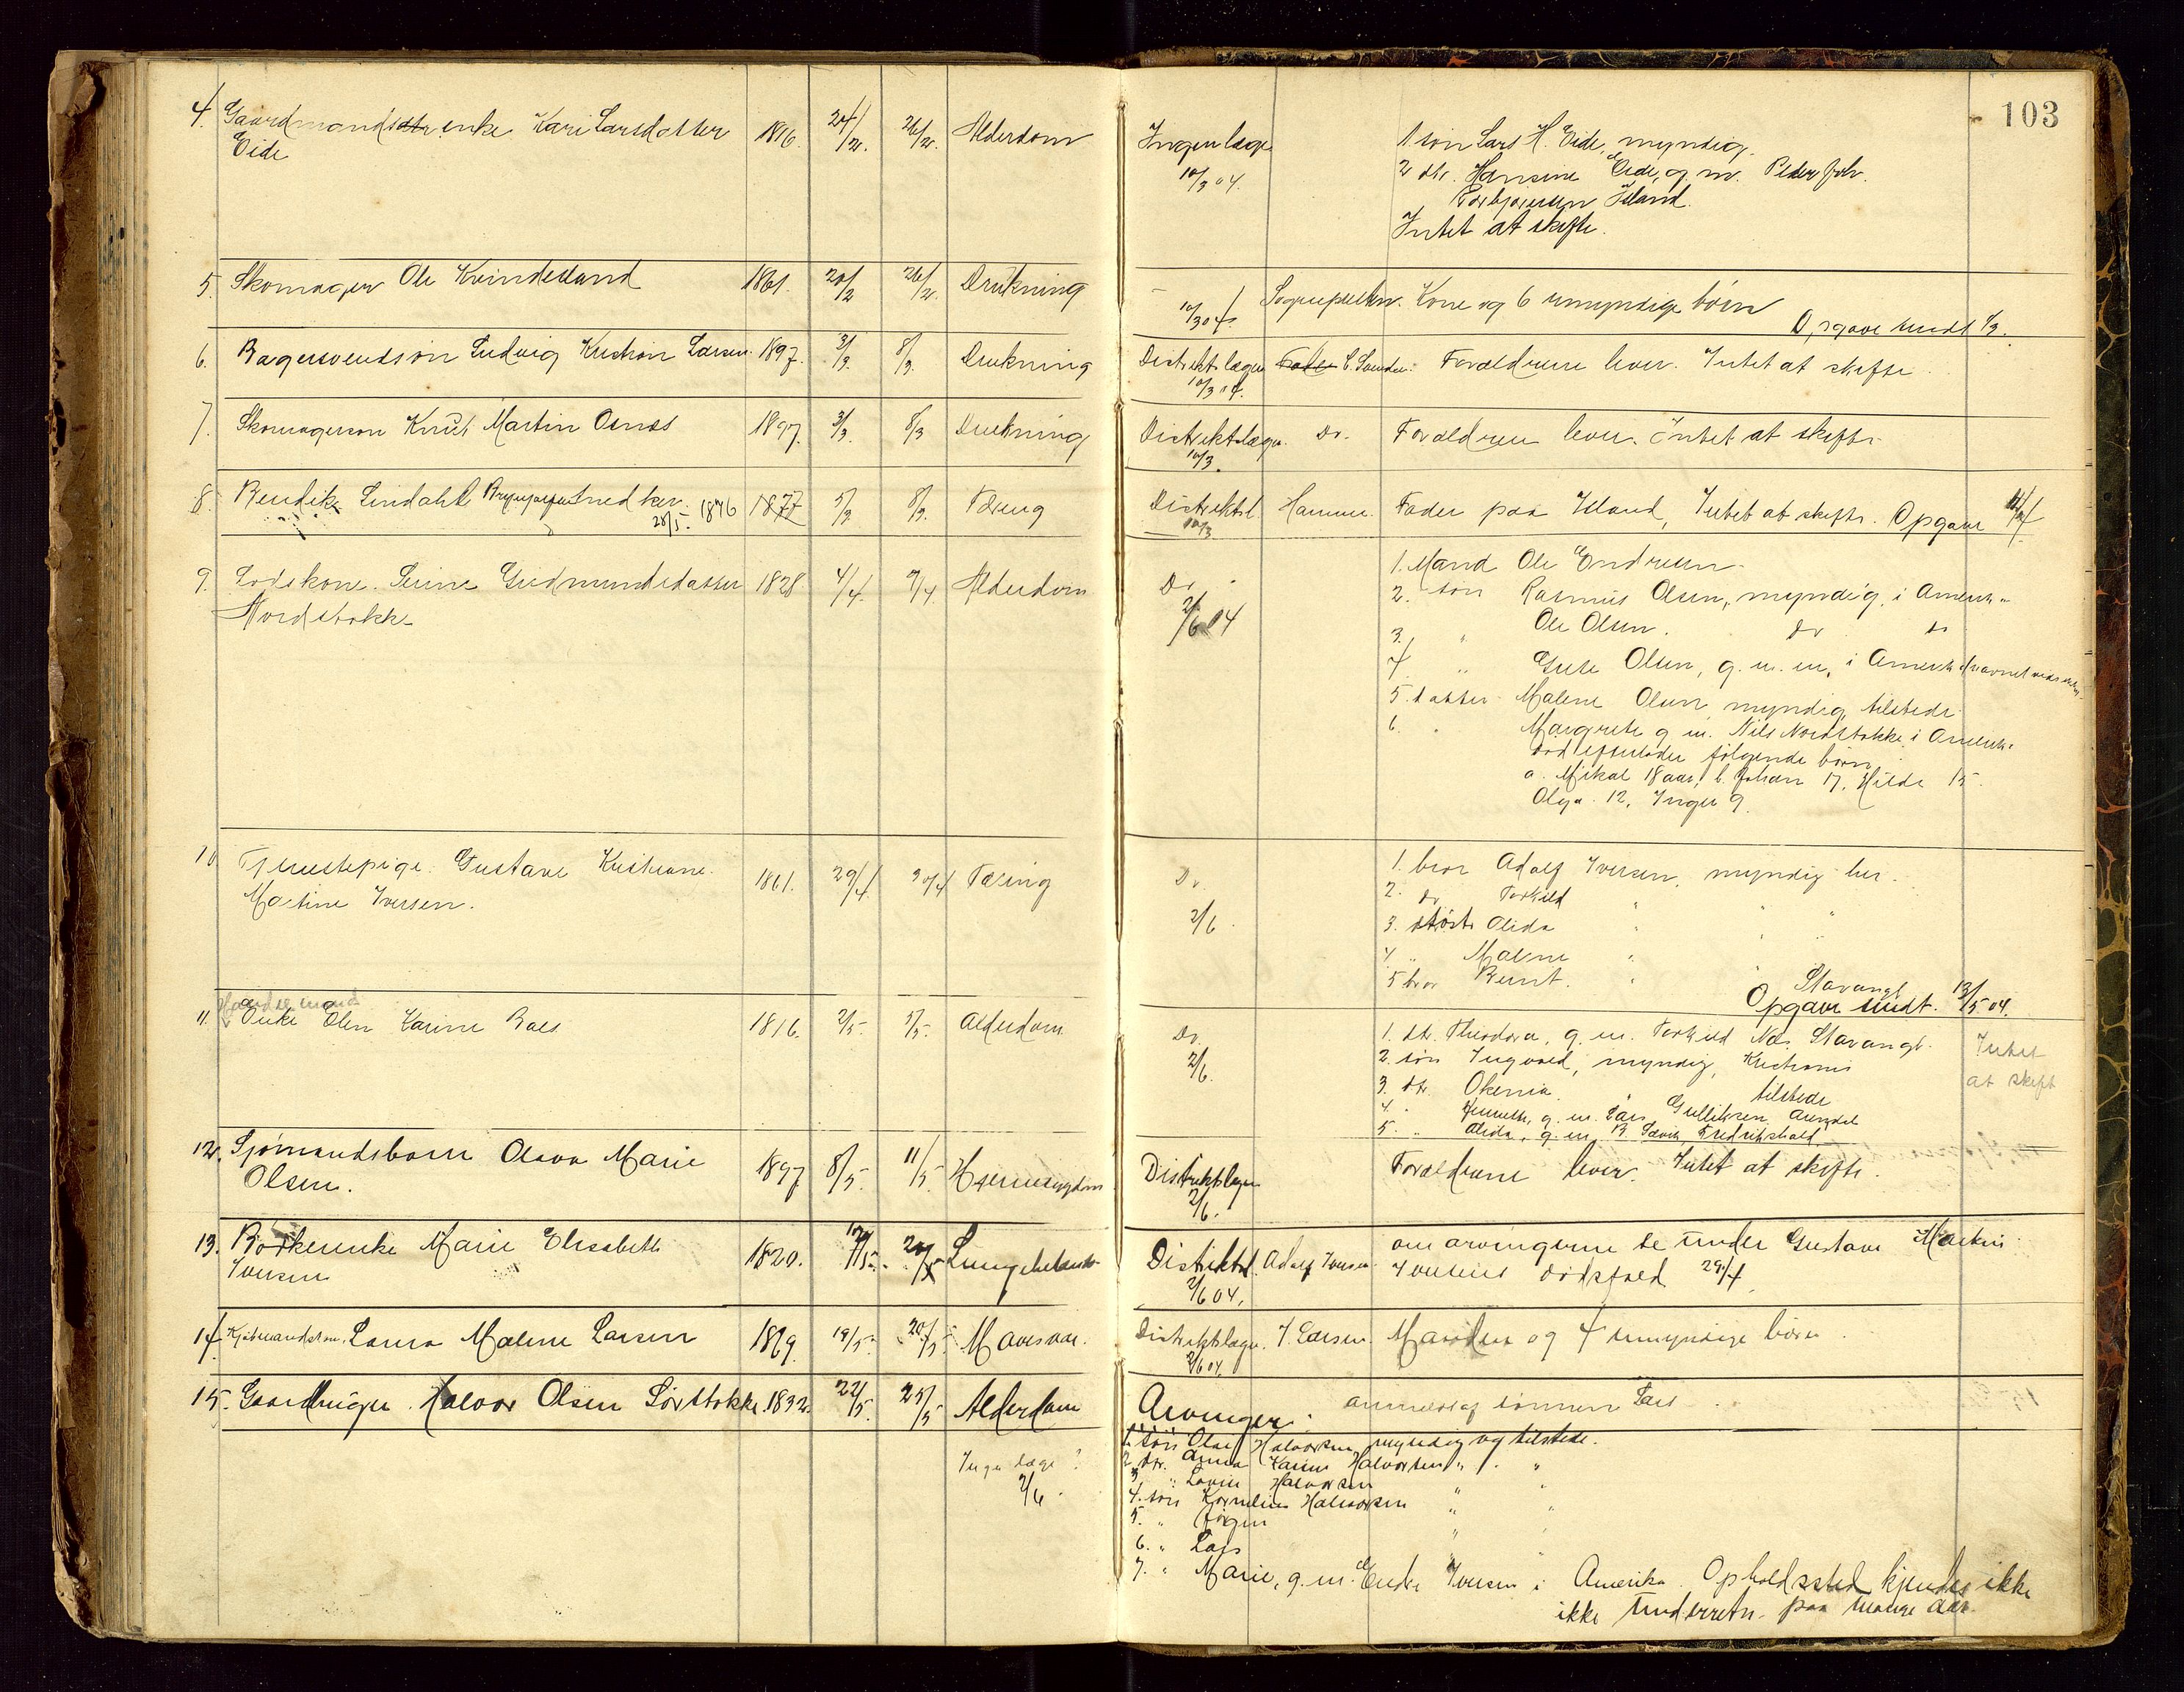 103
4. Gaardmandsenke Kari Larsdatter 1816. 24/2. 26/2. Alderdom Ingen læge 1 søn Lars H. Eide, myndig.
Eide 10/3 04. 2 dtr. Hansine Eide, g. m. Peder Joh.
Torbjørnsen Iland.
Intet at skifte.
5. Skomager Ole Kvindesland 1861. 20/2 26/2. Drukning 10/3 04. Kone og 6 umyndige børn
Opgave sendt 1/3.
6. Bagersvendsøn Ludvig Kristian Larsen 1897. 3/3. 8/3. Drukning Distriktslægen Forældrene lever. Intet at skifte
10/3 04.
7. Skomagersøn Knut Martin Osnes 1897. 3/3. 8/3 Drukning Distriktslægen. Do. Forældrene lever. Intet at skifte.
10/3.
8. Bendike Lindahl 1876 1877 5/3. 8/3. Tæring Distriktsl. Hammer. Fader paa Island, Intet at skifte. Opgave
28/5. 10/3
9. Lodskone. Serine Gudmundsdatter 1828 4/4. 9/4. Alderdom Do. 1. Mand Ole Endresen.
Nordstokke 2/6 04 2. søn Rasmus Olsen, myndig, i Amerik.
3. " Ole Olsen. do do
4 " Olsen, g. m. en, i Amerik.
5. datter Malene Olsen, myndig, tilstede
6. " Margrete g m. Nils Nordstokke i Amerik.
død efterlader følgende børn
a. Mikal 18 aar, b. Johan 17, Hilde 15.
Olga 12, Inger 9.
10 Tjenestepige. Gustava Kristiane 1861. 29/4. 30/4 Tæring Do. 1. bror Adolf Iversen, myndig her.
Martine Iversen. 2/6. 2. do Torkild " " "
3. søster Alida " " "
4 " Malene "
5 bror Bernt. " " Stavanger
Opgave sendt. 13/5 04.
Handelsmand
11. Enke Olen Karine Roes 1816. 2/5. 5/5. Alderdom Do. 1. dtr. Theodora, g. m. Torkild Næs, Stavanger. Intet
2/6. 2. søn Ingvald, myndig, Kristiania at skift
3. dtr. Okenia " tilstede
4. " g. m. Lars Gulliksen Arendal
5. " Alida, g. m. B. Fredrikshald
12. Sjømandsbarn Olava Marie 1897 8/5. 11/5. Hjernesygdom Distriktslægen Forældrene lever. Intet at skifte.
Olsen. 2/6.
13. Bødkerenke Marie Elisabeth 1820. Lungebetænd. Distriktsl. Adolf Iversen om arvingerne se under Gustava Martin
Iversen 2/6 04. Iversens dødsfald 29/4.
14. Kjøbmandskone. Laura Malene Larsen 1869. 19/5. 20/5. Mavesaar. Distriktslægen. J. Larsen. Manden og 4 umyndige børn.
2/6 04.
15. Gaardbruger Halvor Olsen Sørstokke. 1832. 22/5. 25/5 Alderdom Arvinger. anmeldt af sønnen Lars
Ingen læge? 1. søn Olai Halvorsen, myndig og tilstede.
2/6. 2. dtr. Anna Karine Halvorsen " "
3. " Halvorsen " "
4. søn Kornelius Halvorsen " "
5. " Jørgen " "
6. " Lars " "
7. " Marie, g. m. Endre Iversen i Amerika. Opholdssted kjendes ikke
ikke underretn. paa mange aar.